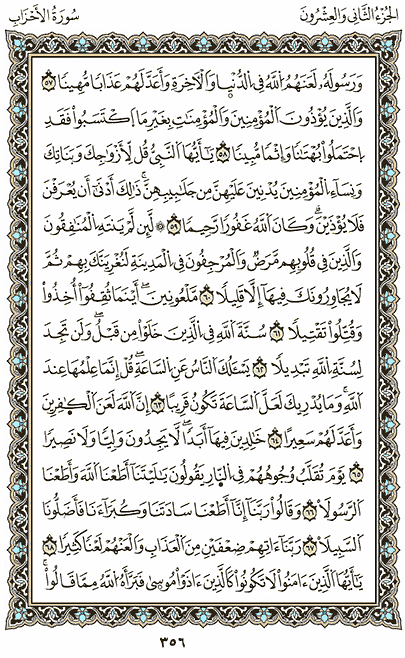 الجزء الثاني والعشرون
سورة الأحزاب
وَرَسُولَهُۥ لَعَنَهُمُ ٱللَّهُ فِى ٱلدُّنْيَا وَٱلْءَاخِرَةِ وَأَعَدَّ لَهُمْ عَذَابًا مُّهِينًا ٥٧
وَٱلَّذِينَ يُؤْذُونَ ٱلْمُؤْمِنِينَ وَٱلْمُؤْمِنَٰتِ بِغَيْرِ مَا ٱكْتَسَبُوا۟ فَقَدِ
ٱحْتَمَلُوا۟ بُهْتَٰنًا وَإِثْمًا مُّبِينًا ٥٨ يَٰٓأَيُّهَا ٱلنَّبِىُّ قُل لِّأَزْوَٰجِكَ وَبَنَاتِكَ
وَنِسَآءِ ٱلْمُؤْمِنِينَ يُدْنِينَ عَلَيْهِنَّ مِن جَلَٰبِيبِهِنَّ ۚ ذَٰلِكَ أَدْنَىٰٓ أَن يُعْرَفْنَ
فَلَا يُؤْذَيْنَ ۗ وَكَانَ ٱللَّهُ غَفُورًا رَّحِيمًا ٥٩ ۞ لَّئِن لَّمْ يَنتَهِ ٱلْمُنَٰفِقُونَ
وَٱلَّذِينَ فِى قُلُوبِهِم مَّرَضٌ وَٱلْمُرْجِفُونَ فِى ٱلْمَدِينَةِ لَنُغْرِيَنَّكَ بِهِمْ ثُمَّ
لَا يُجَاوِرُونَكَ فِيهَآ إِلَّا قَلِيلًا ٦٠ مَّلْعُونِينَ ۖ أَيْنَمَا ثُقِفُوٓا۟ أُخِذُوا۟
وَقُتِّلُوا۟ تَقْتِيلًا ٦١ سُنَّةَ ٱللَّهِ فِى ٱلَّذِينَ خَلَوْا۟ مِن قَبْلُ ۖ وَلَن تَجِدَ
لِسُنَّةِ ٱللَّهِ تَبْدِيلًا ٦٢ يَسْـَٔلُكَ ٱلنَّاسُ عَنِ ٱلسَّاعَةِ ۖ قُلْ إِنَّمَا عِلْمُهَا عِندَ
ٱللَّهِ ۚ وَمَا يُدْرِيكَ لَعَلَّ ٱلسَّاعَةَ تَكُونُ قَرِيبًا ٦٣ إِنَّ ٱللَّهَ لَعَنَ ٱلْكَٰفِرِينَ
وَأَعَدَّ لَهُمْ سَعِيرًا ٦٤ خَٰلِدِينَ فِيهَآ أَبَدًا ۖ لَّا يَجِدُونَ وَلِيًّا وَلَا نَصِيرًا
٦٥ يَوْمَ تُقَلَّبُ وُجُوهُهُمْ فِى ٱلنَّارِ يَقُولُونَ يَٰلَيْتَنَآ أَطَعْنَا ٱللَّهَ وَأَطَعْنَا
ٱلرَّسُولَا۠ ٦٦ وَقَالُوا۟ رَبَّنَآ إِنَّآ أَطَعْنَا سَادَتَنَا وَكُبَرَآءَنَا فَأَضَلُّونَا
ٱلسَّبِيلَا۠ ٦٧ رَبَّنَآ ءَاتِهِمْ ضِعْفَيْنِ مِنَ ٱلْعَذَابِ وَٱلْعَنْهُمْ لَعْنًا كَثِيرًا ٦٨
يَٰٓأَيُّهَا ٱلَّذِينَ ءَامَنُوا۟ لَا تَكُونُوا۟ كَٱلَّذِينَ ءَاذَوْا۟ مُوسَىٰ فَبَرَّأَهُ ٱللَّهُ مِمَّا قَالُوا۟ ۚ
٣٥٦